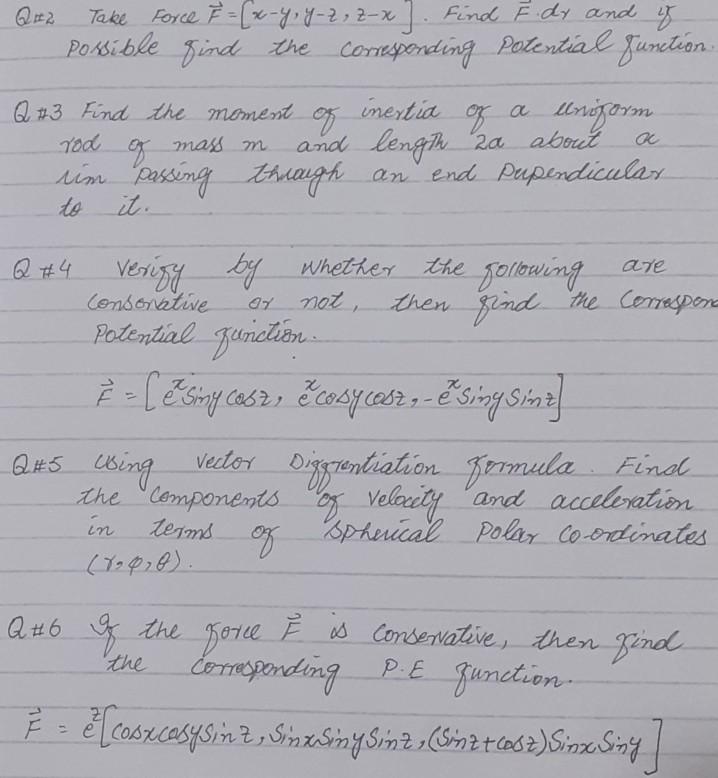 Q#2 Take Force F⃗ = [x-y, y-z, z-x]. Find F⃗.dr and if
Possible find the corresponding Potential function.
Q#3 Find the moment of inertia of a uniform
rod of mass m and length 2a about a
passing through an end Pependicular
to it.
Q#4 Verify by whether the following are
Conservative or not, then find the Correspon
Potential function.
F⃗ = [e^x Siny cosz, e^x cosy cosz, -e^x Siny Sinz]
Q#5 Using Vector Differentiation formula. Find
the components of velocity and acceleration
in terms of Spherical Polar Co-ordinates
(r, φ, θ).
Q#6 If the force F⃗ is Conservative, then find
the Corresponding P.E function.
F⃗ = e^z [cosx cosy Sinz, Sinx Siny Sinz, (Sinz + cosz) Sinx Siny]